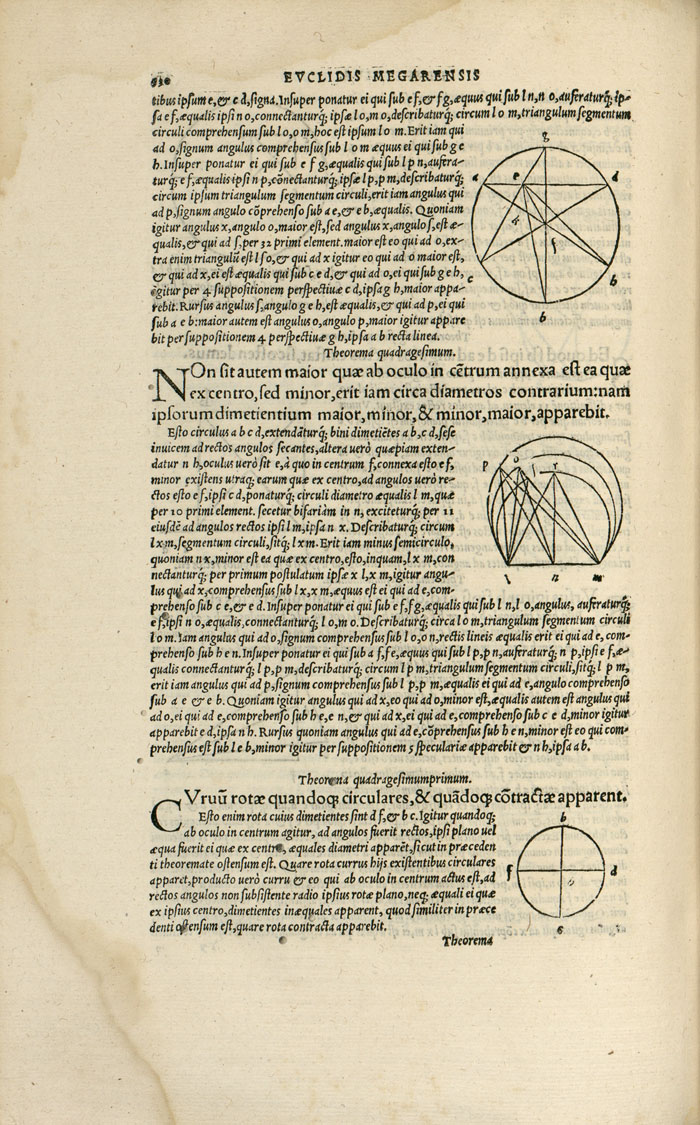 EVCLIDIS MEGARENSIS
tibus ipsum e, & c d, signa. Insuper ponatur ei qui sub e f, & f g, æquus qui sub l n, n o, auferaturq; ip-
sa e f, æqualis ipsi n o, connectanturq; ipsæ l o, m o, describaturq; circum l o m, triangulum segmentum
circuli comprehensum sub l o, o m, hoc est ipsum l o m. Erit iam qui
ad o, signum angulus comprehensus sub l o m æquus ei qui sub g e
h. Insuper ponatur ei qui sub e f g, æqualis qui sub l p n, aufera-
turq; e f, æqualis ipsi n p, cōnectanturq; ipsæ l p, p m, describaturq;
circum ipsum triangulum segmentum circuli, erit iam angulus qui
ad p, signum angulo cōprehenso sub a e, & e b, æqualis. Quoniam
igitur angulus x, angulo o, maior est, sed angulus x, angulo s, est æ-
qualis, & qui ad s, per 32 primi element. maior est eo qui ad o, ex-
tra enim triangulū est l s o, & qui ad x igitur eo qui ad o maior est,
& qui ad x, ei est æqualis qui sub c e d, & qui ad o, ei qui sub g e h,
igitur per 4 suppositionem perspectiuæ c d, ipsa g h, maior appa-
rebit. Rursus angulus s, angulo g e h, est æqualis, & qui ad p, ei qui
sub a e b: maior autem est angulus o, angulo p, maior igitur appare
bit per suppositionem 4 perspectiuæ g h, ipsa a b recta linea.
g
a
e
d
k
f
c
h
b
Theorema quadragesimum.
NOn sit autem maior quæ ab oculo in cētrum annexa est ea quæ
ex centro, sed minor, erit iam circa diametros contrarium: nam
ipsorum dimetientium maior, minor, & minor, maior, apparebit.
Esto circulus a b c d, extendāturq; bini dimetiētes a b, c d, sese
inuicem ad rectos angulos secantes, altera uerò quæpiam exten-
datur n h, oculus uerò sit e, à quo in centrum f, connexa esto e f,
minor existens utraq; earum quæ ex centro, ad angulos uerò re-
ctos esto e f, ipsi c d, ponaturq; circuli diametro æqualis l m, quæ
per 10 primi element. secetur bifariàm in n, exciteturq; per 11
eiusdē ad angulos rectos ipsi l m, ipsa n x. Describaturq; circum
l x m, segmentum circuli, sitq; l x m. Erit iam minus semicirculo,
quoniam n x, minor est ea quæ ex centro, esto, inquam, l x m, con
nectanturq; per primum postulatum ipsæ x l, x m, igitur angu-
lus qui ad x, comprehensus sub l x, x m, æquus est ei qui ad e, com-
prehenso sub c e, & e d. Insuper ponatur ei qui sub e f, f g, æqualis qui sub l n, l o, angulus, auferaturq;
e f, ipsi n o, æqualis, connectanturq; l o, m o. Describaturq; circa l o m, triangulum segmentum circuli
l o m. Iam angulus qui ad o, signum comprehensus sub l o, o n, rectis lineis æqualis erit ei qui ad e, com-
prehenso sub h e n. Insuper ponatur ei qui sub a f, f e, æquus qui sub l p, p n, auferaturq; n p, ipsi e f, æ-
qualis connectanturq; l p, p m, describaturq; circum l p m, triangulum segmentum circuli, sitq; l p m,
erit iam angulus qui ad p, signum comprehensus sub l p, p m, æqualis ei qui ad e, angulo comprehenso
sub a e & e b. Quoniam igitur angulus qui ad x, eo qui ad o, minor est, æqualis autem est angulus qui
ad o, ei qui ad e, comprehenso sub h e, e n, & qui ad x, ei qui ad e, comprehenso sub c e d, minor igitur
apparebit e d, ipsa n h. Rursus quoniam angulus qui ad e, cōprehensus sub h e n, minor est eo qui com-
prehensus est sub l e b, minor igitur per suppositionem 5 speculariæ apparebit & n h, ipsa a b.
p
o
r
l
n
m
Theorema quadragesimumprimum.
CVruū rotæ quandoq; circulares, & quādoq; cōtractæ apparent.
Esto enim rota cuius dimetientes sint d f, & b c. Igitur quandoq;
ab oculo in centrum agitur, ad angulos fuerit rectos, ipsi plano uel
æqua fuerit ei quæ ex centro, æquales diametri apparēt, sicut in præceden
ti theoremate ostensum est. Quare rota currus hijs existentibus circulares
apparet, producto uerò curru & eo qui ab oculo in centrum actus est, ad
rectos angulos non subsistente radio ipsius rotæ plano, neq; æquali ei quæ
ex ipsius centro, dimetientes inæquales apparent, quod similiter in præce
denti ostensum est, quare rota contracta apparebit.
b
f
d
Theorema